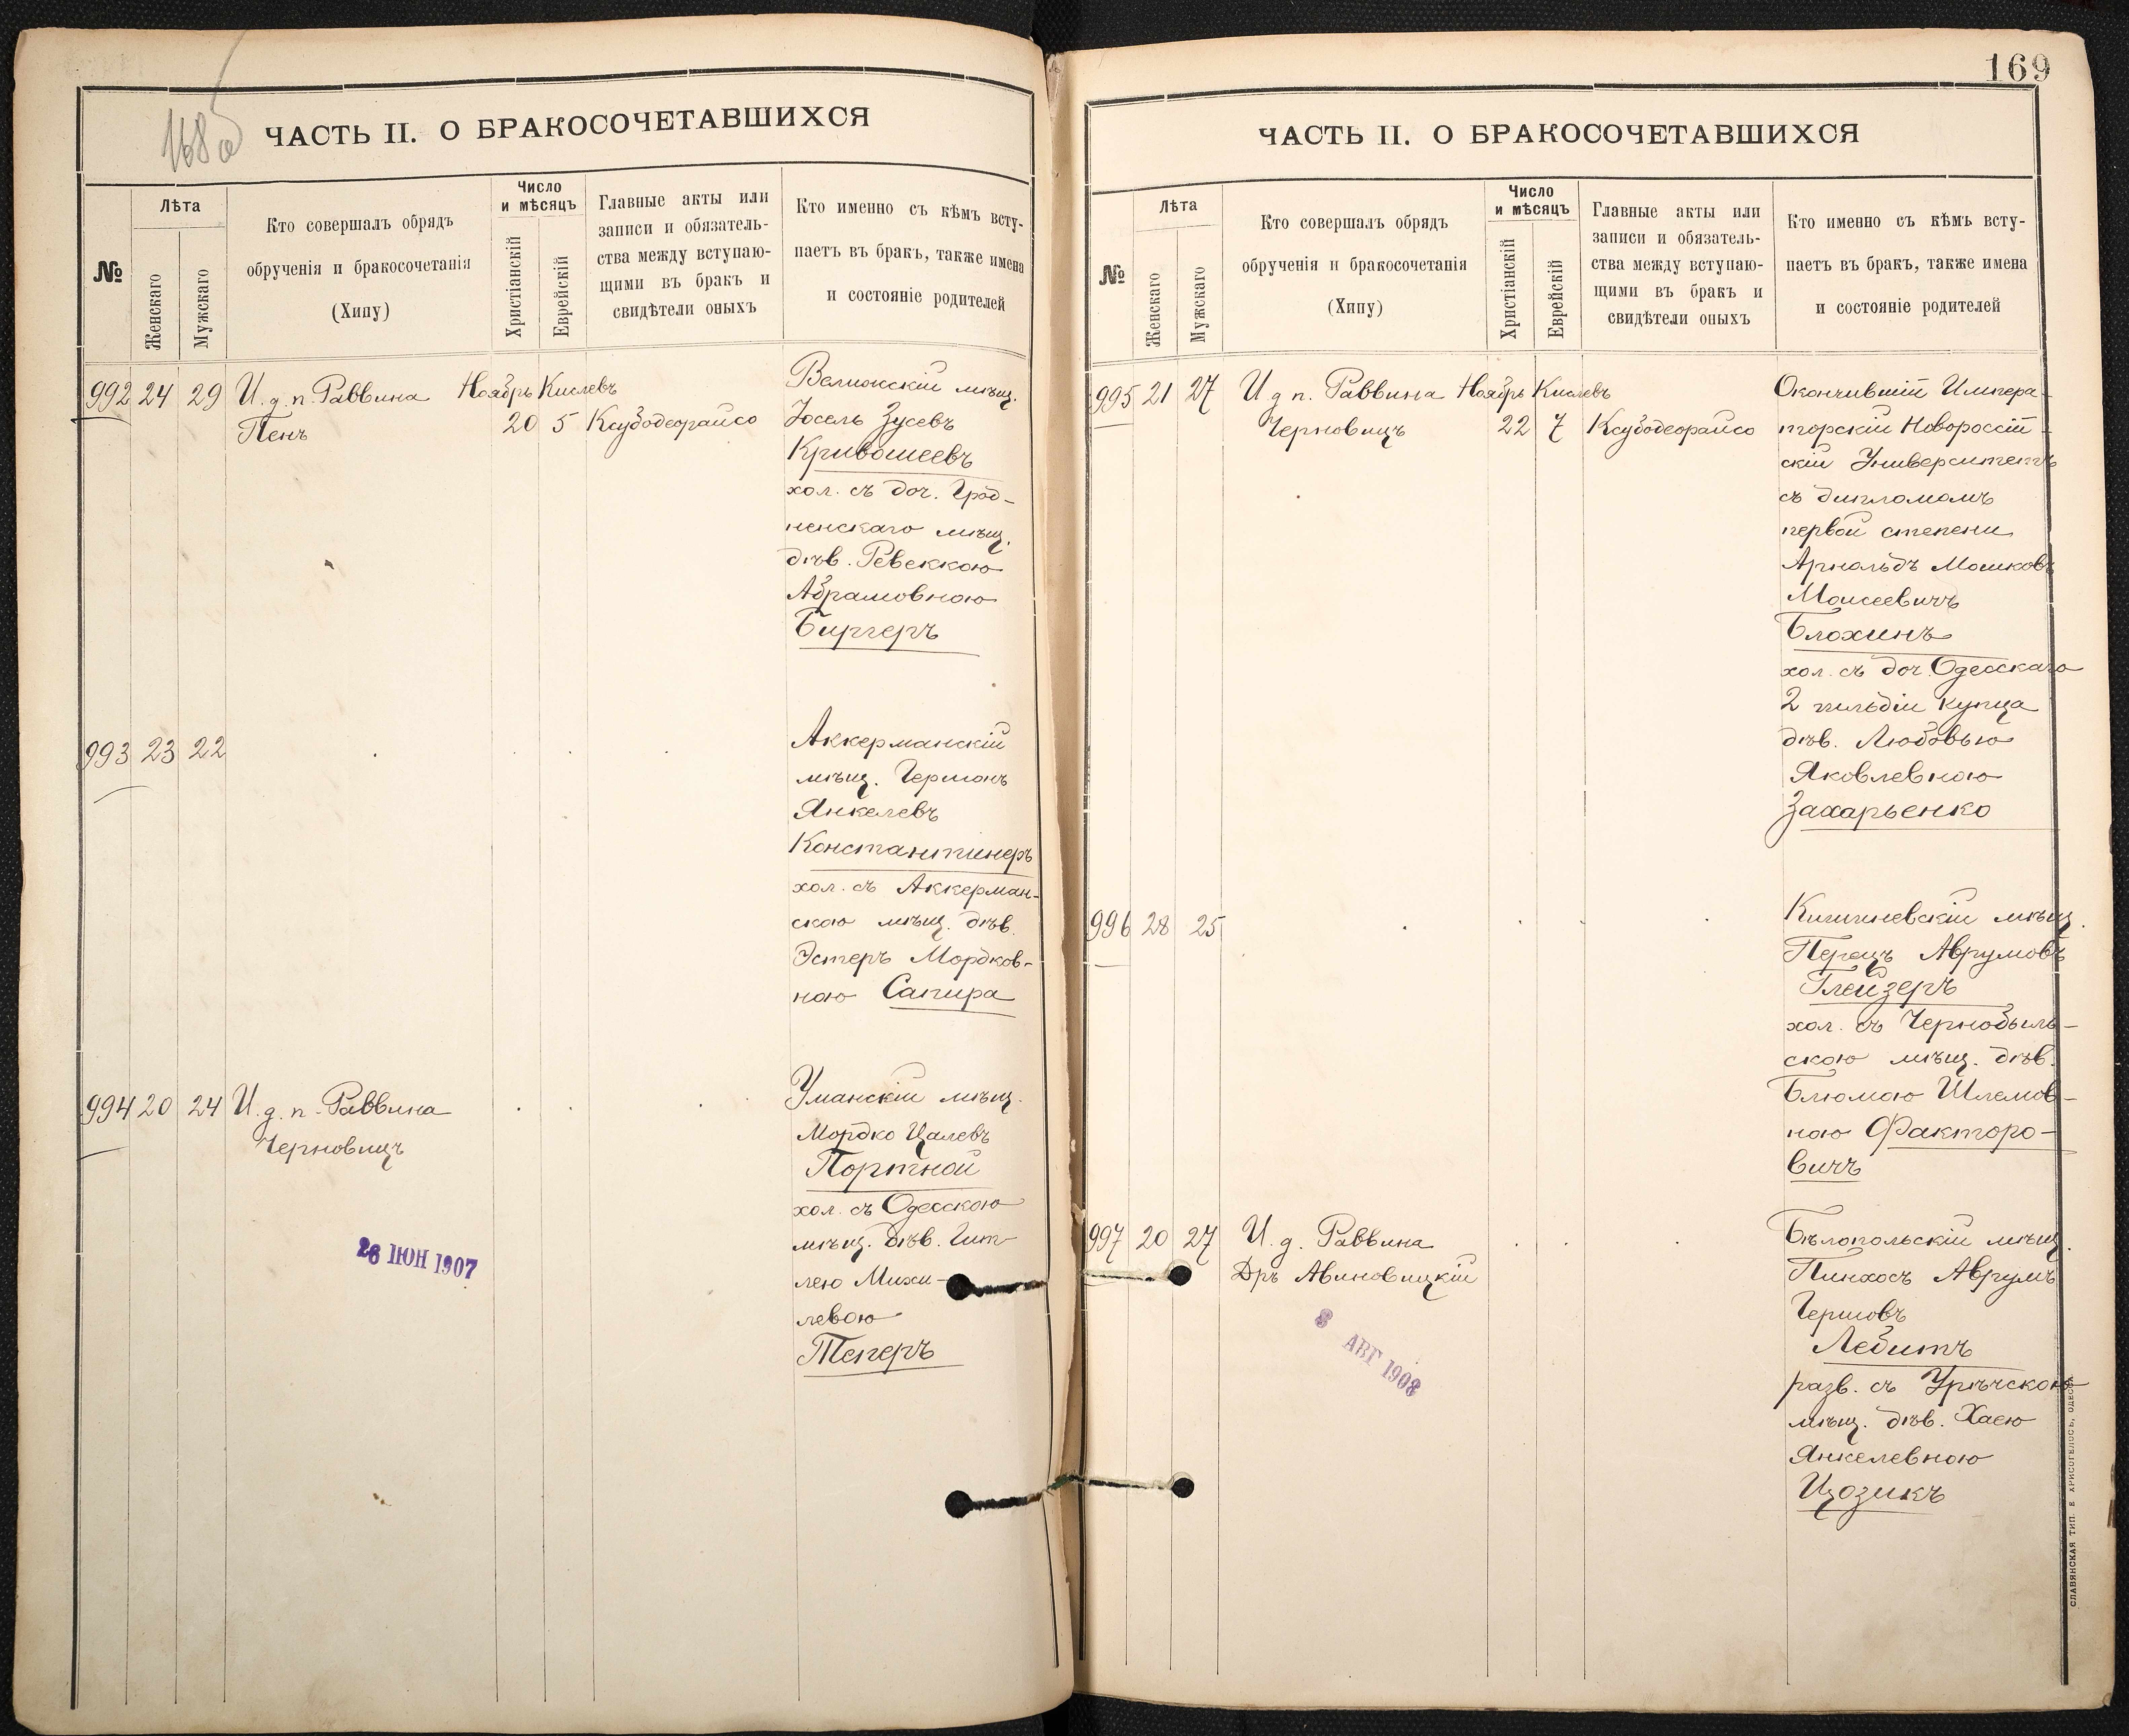 168 об
ЧАСТЬ II. О БРАКОСОЧЕТАВШИХСЯ
№
Лѣта
Женскаго
Мужскаго
Кто совершалъ обрядъ
обрученія и бракосочетанія
(Хипу)
Число
и мѣсяцъ
Христіанскій
Еврейскій
Главные акты или
записи и обязатель-
ства между вступаю-
щими въ бракъ и
свидѣтели оныхъ
Кто именно съ кѣмъ всту-
паетъ въ бракъ, также имена
и состояніе родителей
992 24 29 И. д. п. Раввина Ноябрь Кислевъ
Пенъ 20 5 Ксубодеорайсо
Велижскій мѣщ.
Іосель Зусевъ
Кривошеевъ
хол. съ доч. Грод-
ненскаго мѣщ.
дѣв. Ревеккою
Абрамовною
Биргеръ
993 23 22
Аккерманскій
мѣщ. Германъ
Янкелевъ
Константинеръ
хол. съ Аккерман-
скою мѣщ. дѣв.
Эстеръ Мордков-
ною Сапира
994 20 24 И. д. п. Раввина
Черновицъ
Уманскій мѣщ.
Мордко Цалевъ
Портной
хол. съ Одесскою
мѣщ. дѣв. Гит-
лею Михи-
левою
Теперъ
26 ІЮН 1907
169
ЧАСТЬ II. О БРАКОСОЧЕТАВШИХСЯ
№
Лѣта
Женскаго
Мужскаго
Кто совершалъ обрядъ
обрученія и бракосочетанія
(Хипу)
Число
и мѣсяцъ
Христіанскій
Еврейскій
Главные акты или
записи и обязатель-
ства между вступаю-
щими въ бракъ и
свидѣтели оныхъ
Кто именно съ кѣмъ всту-
паетъ въ бракъ, также имена
и состояніе родителей
995 21 27 И. д. п. Раввина Ноябрь Кислевъ
Черновицъ 22 7 Ксубодеорайсо
Окончившій Импера-
торскій Новороссій-
скій Университетъ
съ дипломомъ
первой степени
Арнольдъ Мошковъ
Моисеевичъ
Блохинъ
хол. съ доч. Одесскаго
2 гильдіи купца
дѣв. Любовью
Яковлевною
Захарьенко
996 28 25
Кишиневскій мѣщ.
Перецъ Аврумовъ
Глейзеръ
хол. съ Чернобыль-
скою мѣщ. дѣв.
Блюмою Шлемов-
ною Факторо-
вичъ
997 20 27 И. д. Раввина
Дръ Авиновицкій
Бѣлопольскій мѣщ.
Пинхосъ Аврумъ
Гершовъ
Лебитъ
разв. съ Урѣчскою
мѣщ. дѣв. Хаею
Янкелевною
Цозикъ
8 АВГ 1908
СЛАВЯНСКАЯ ТИП. Е. ХРИСОГЕЛОСЪ, ОДЕССА